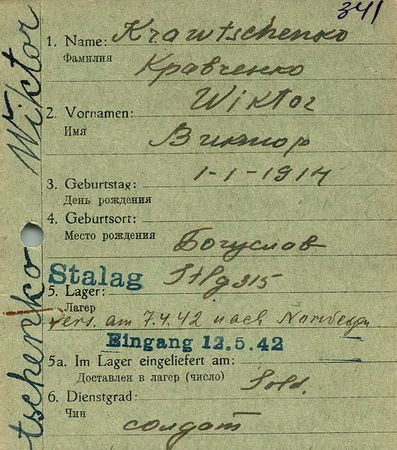 341
1. Name: Krawtschenko
Фамилия
Кравченко
2. Vornamen: Wiktor
Имя
Виктор
3. Geburtstag: 1-1-1914
День рождения
4. Geburtsort:
Место рождения
Богуслав
Stalag Stlg 315
5. Lager:
Лагерь
vers. am 7.4.42 nach Norwegen
Eingang 12.5.42
5a. Im Lager eingeliefert am:
Доставлен в лагерь (число)
Sold.
6. Dienstgrad:
Чин
солдат
tschenko Wiktor